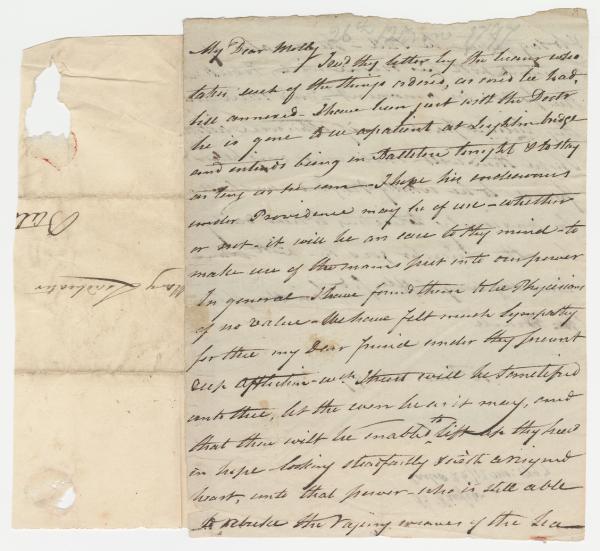 My Dear Molly
I recd. thy letter by the bearer who
takes such of the things ordered, as cord be had,
bill annexed - I have been just with the Doctr
he is gone to see a patient at bridge
and intends being in Ballitore tonight & to stay
as long as he can - I hope his endeavours
under Providence may be of use - whether
or not - it will be an ease to thy mind - to
make use of the means put into our power
In general I have found them to be Physicians
of no value - We have felt much Sympathy
for thee my Dear friend under thy present
deep affliction - wch. I trust will be sanctified
unto thee, let the even be as it may, and
that thou wilt be enabled to lift up thy head
in hope - looking steadfastly & with a resigned
heart, unto that power - who is still able
to rebuke the rageing waves of the Sea
Mary Leadbeater
Bal